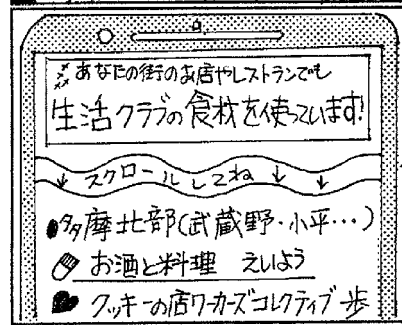 あなたの街のお店やレストランでも
生活クラブの食材を使っています!
↓スクロールしてね↓↓
多摩北部(武蔵野・小平…)
お酒と料理 えいよう
クッキーの店ワーカーズコレクティブ 歩